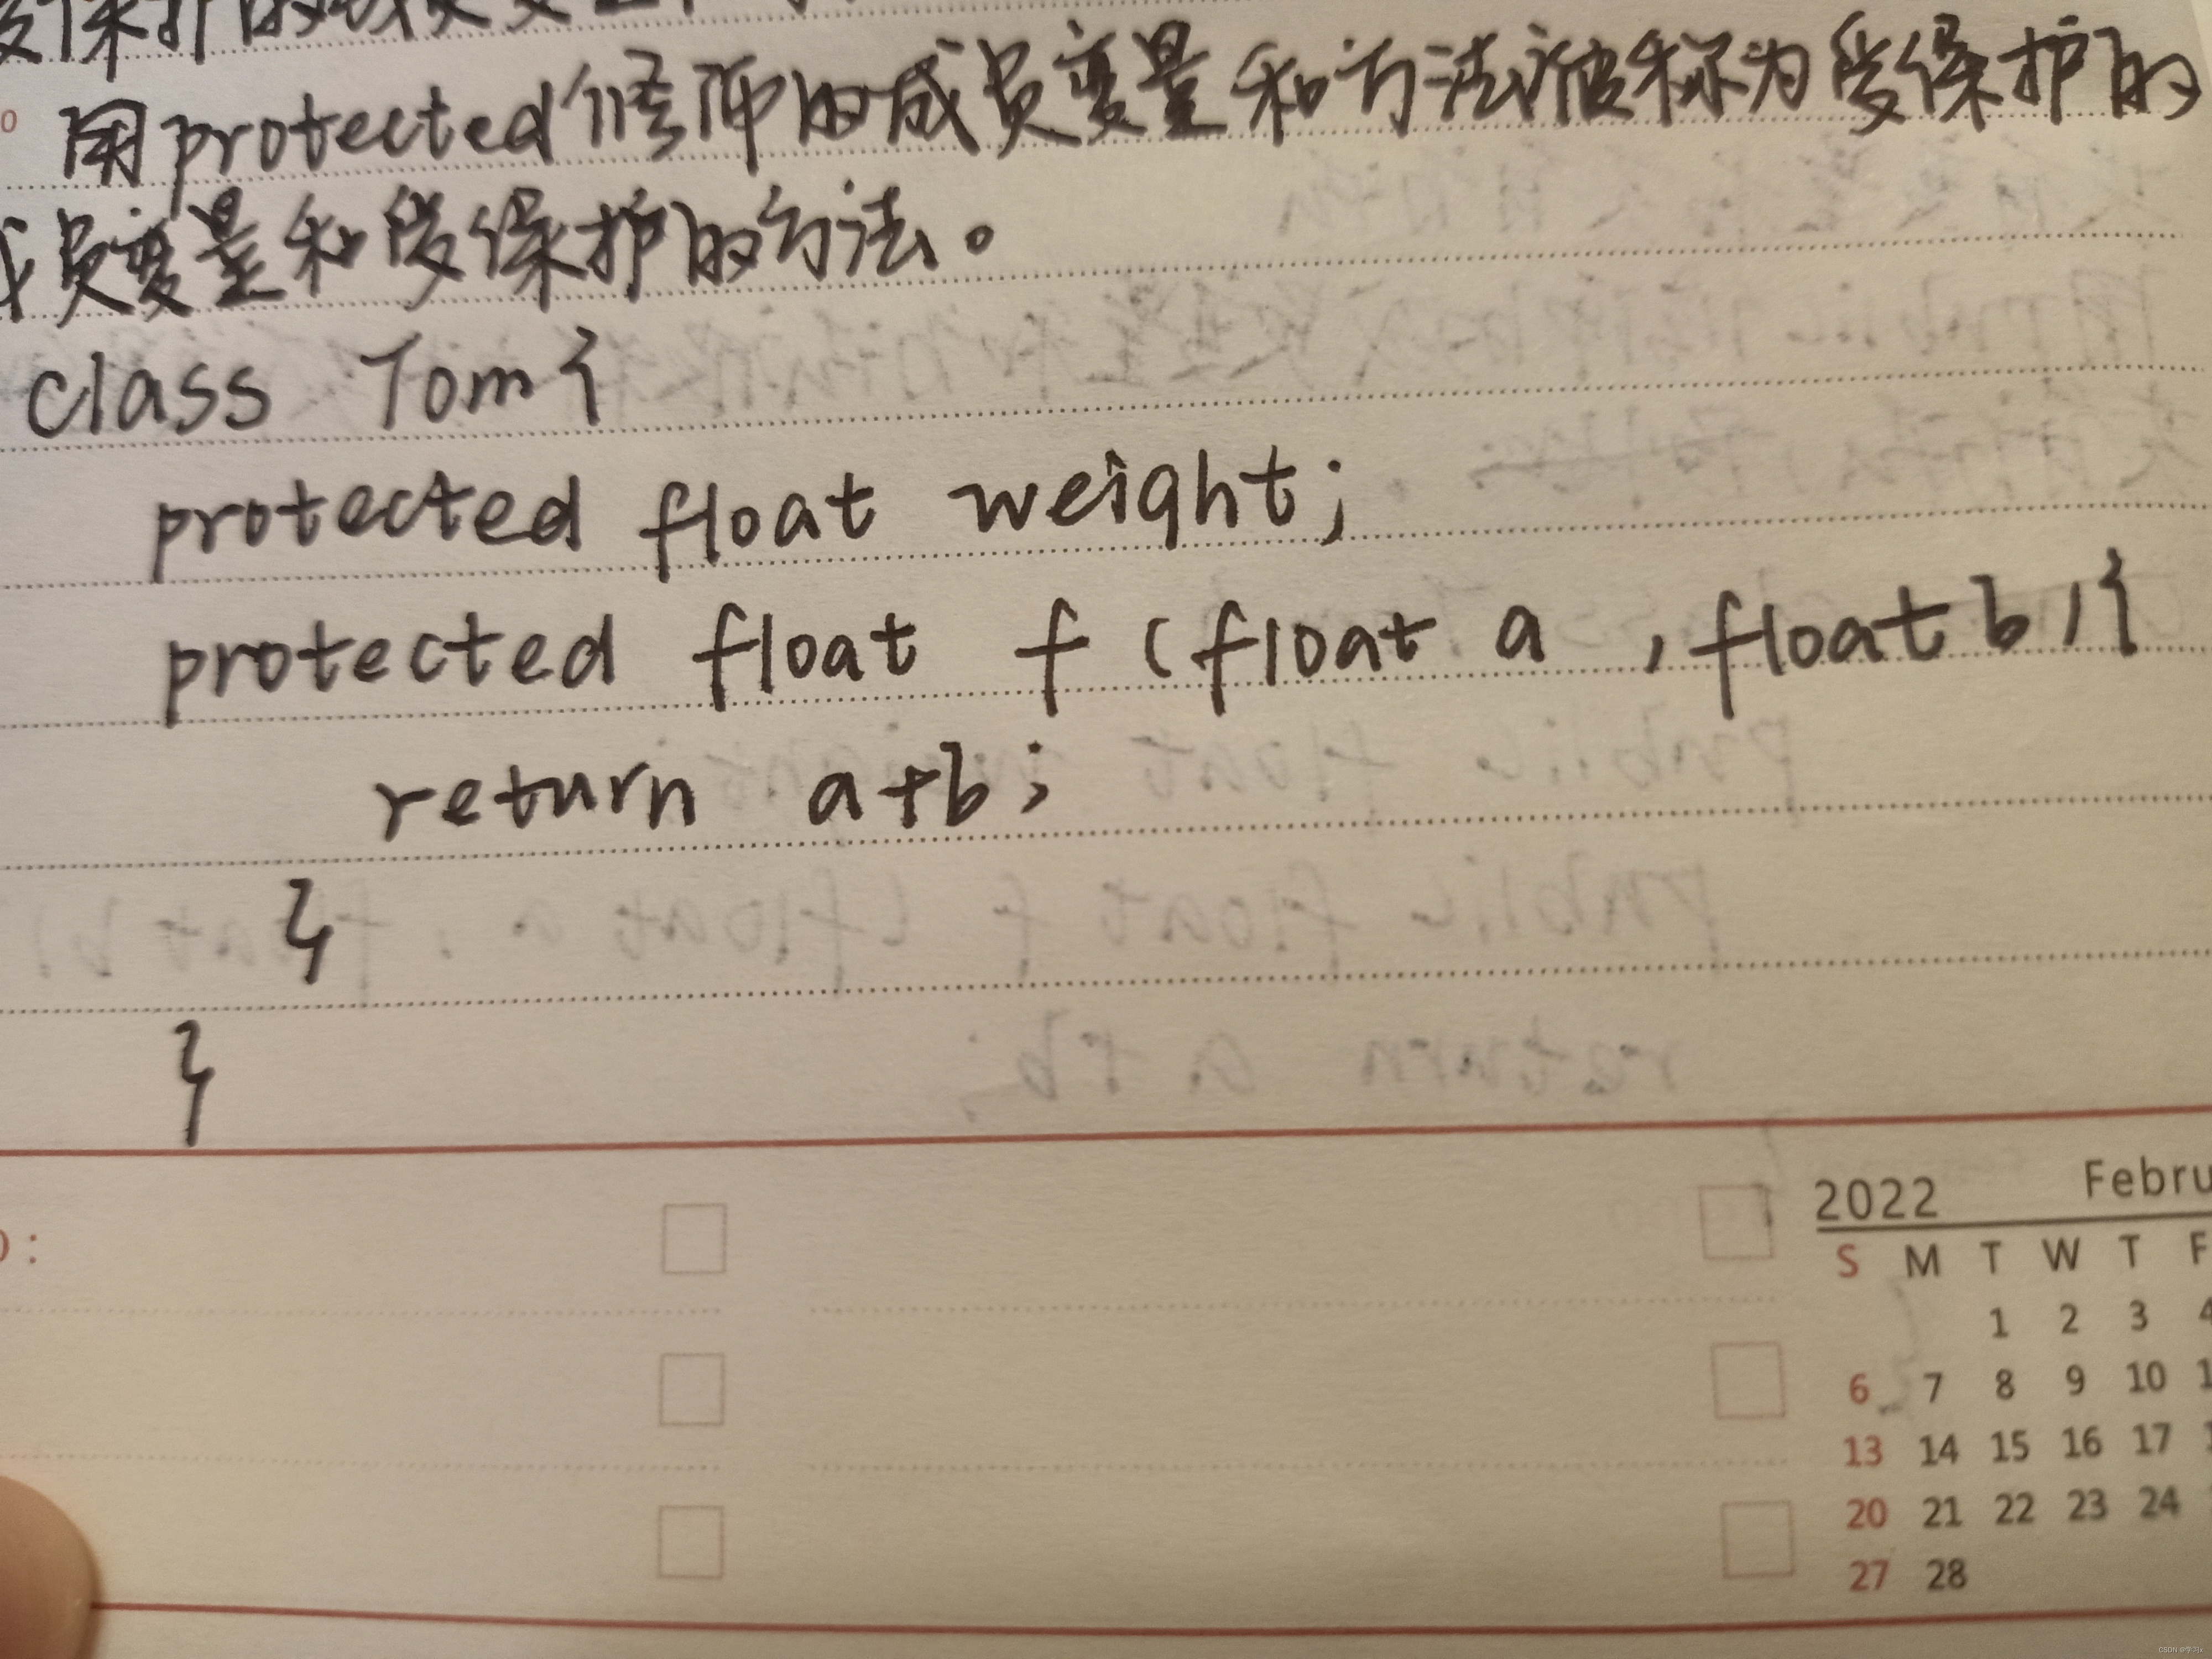 受保护的成员变量
用protected修饰的成员变量和方法被称为受保护的
成员变量和受保护的方法。
class Tom{
protected float weight;
protected float f (float a , float b){
return a+b;
}
}
2022 Febru
S M T W T F
1 2 3 4
6 7 8 9 10 1
13 14 15 16 17 1
20 21 22 23 24
27 28
CSDN @学习x